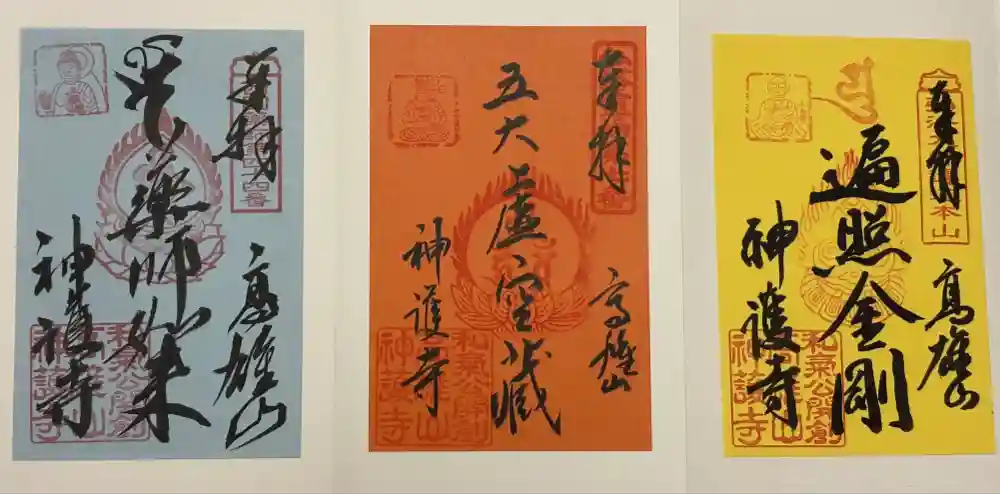 奉拝
高雄山
薬師如来
神護寺
四番
和氣公開創
高雄山
神護寺
奉拝
高雄山
五大虚空蔵
神護寺
和氣公開創
神護寺
奉拝
高雄山
遍照金剛
神護寺
本山
和氣公開創
神護寺